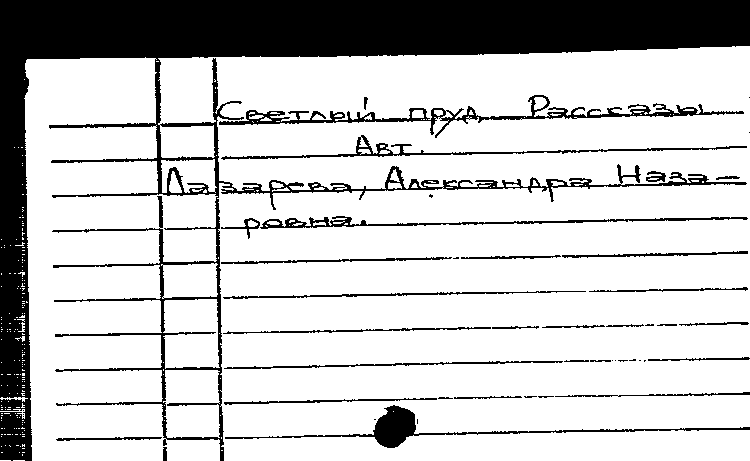 Светлый пруд. Рассказы
Авт.
Лазарева, Александра Наза-
ровна.